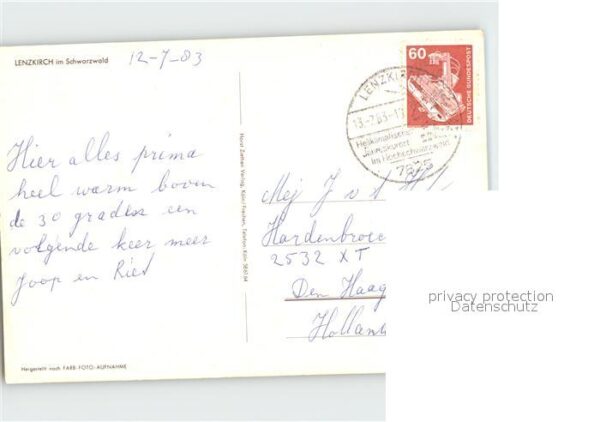 LENZKIRCH im Schwarzwald
12-7-83
60
DEUTSCHE BUNDESPOST
LENZKIRCH
Heilklimatischer
Jahreskurort
im Hochschwarzwald
Hier alles prima
heel warm boven
de 30 graden een
volgende keer meer
Joop en Ried
Horst Ziethen Verlag, Köln/Frechen, Telefon Köln
Mej J v d
Hardenbroe
2532 XT
Den Haag
Hollan
Hergestellt nach FARB-FOTO-AUFNAHME
privacy protection
Datenschutz